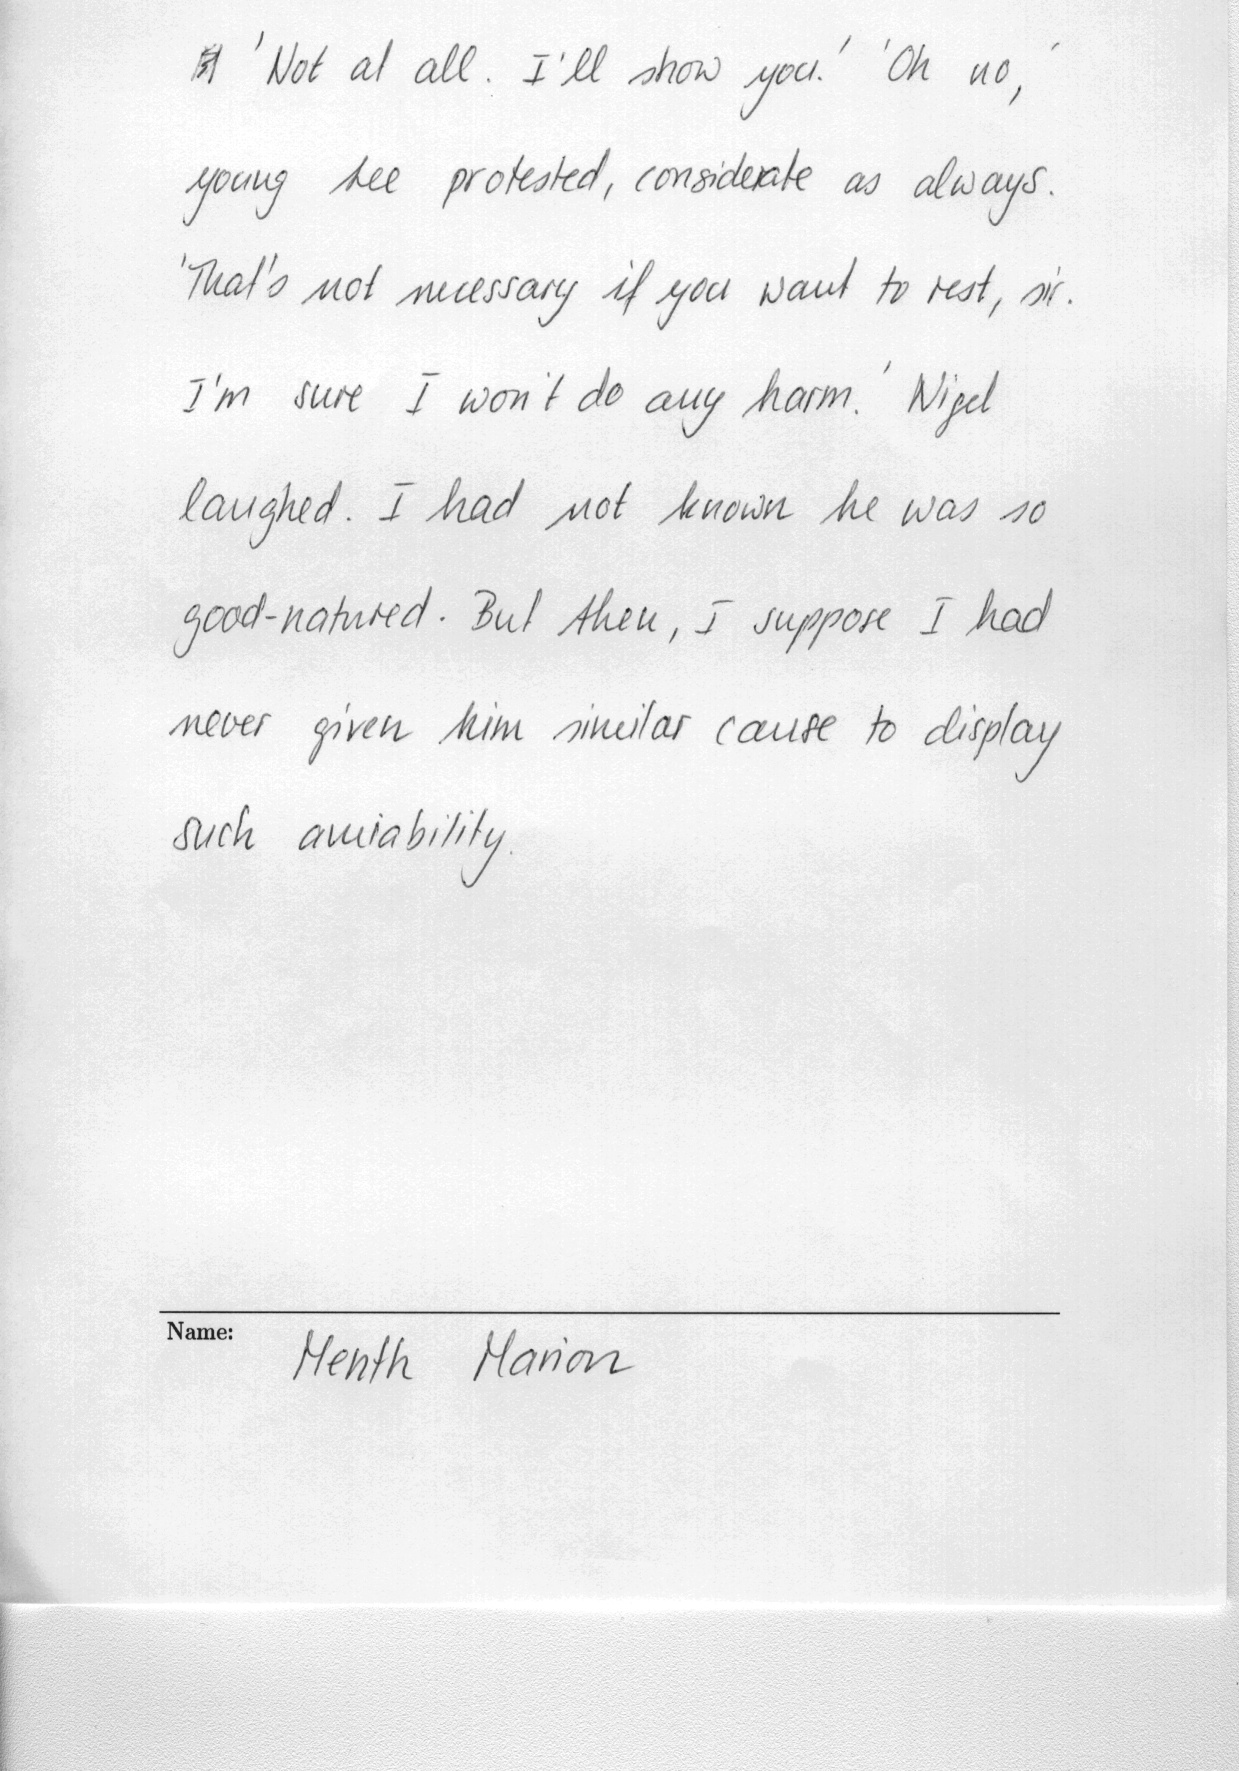 'Not at all. I'll show you.' 'Oh no,'
young Lee protested, considerate as always.
'That's not necessary if you want to rest, sir.
I'm sure I won't do any harm.' Nigel
laughed. I had not known he was so
good-natured. But then, I suppose I had
never given him similar cause to display
such amiability.
Name: Menth Marion